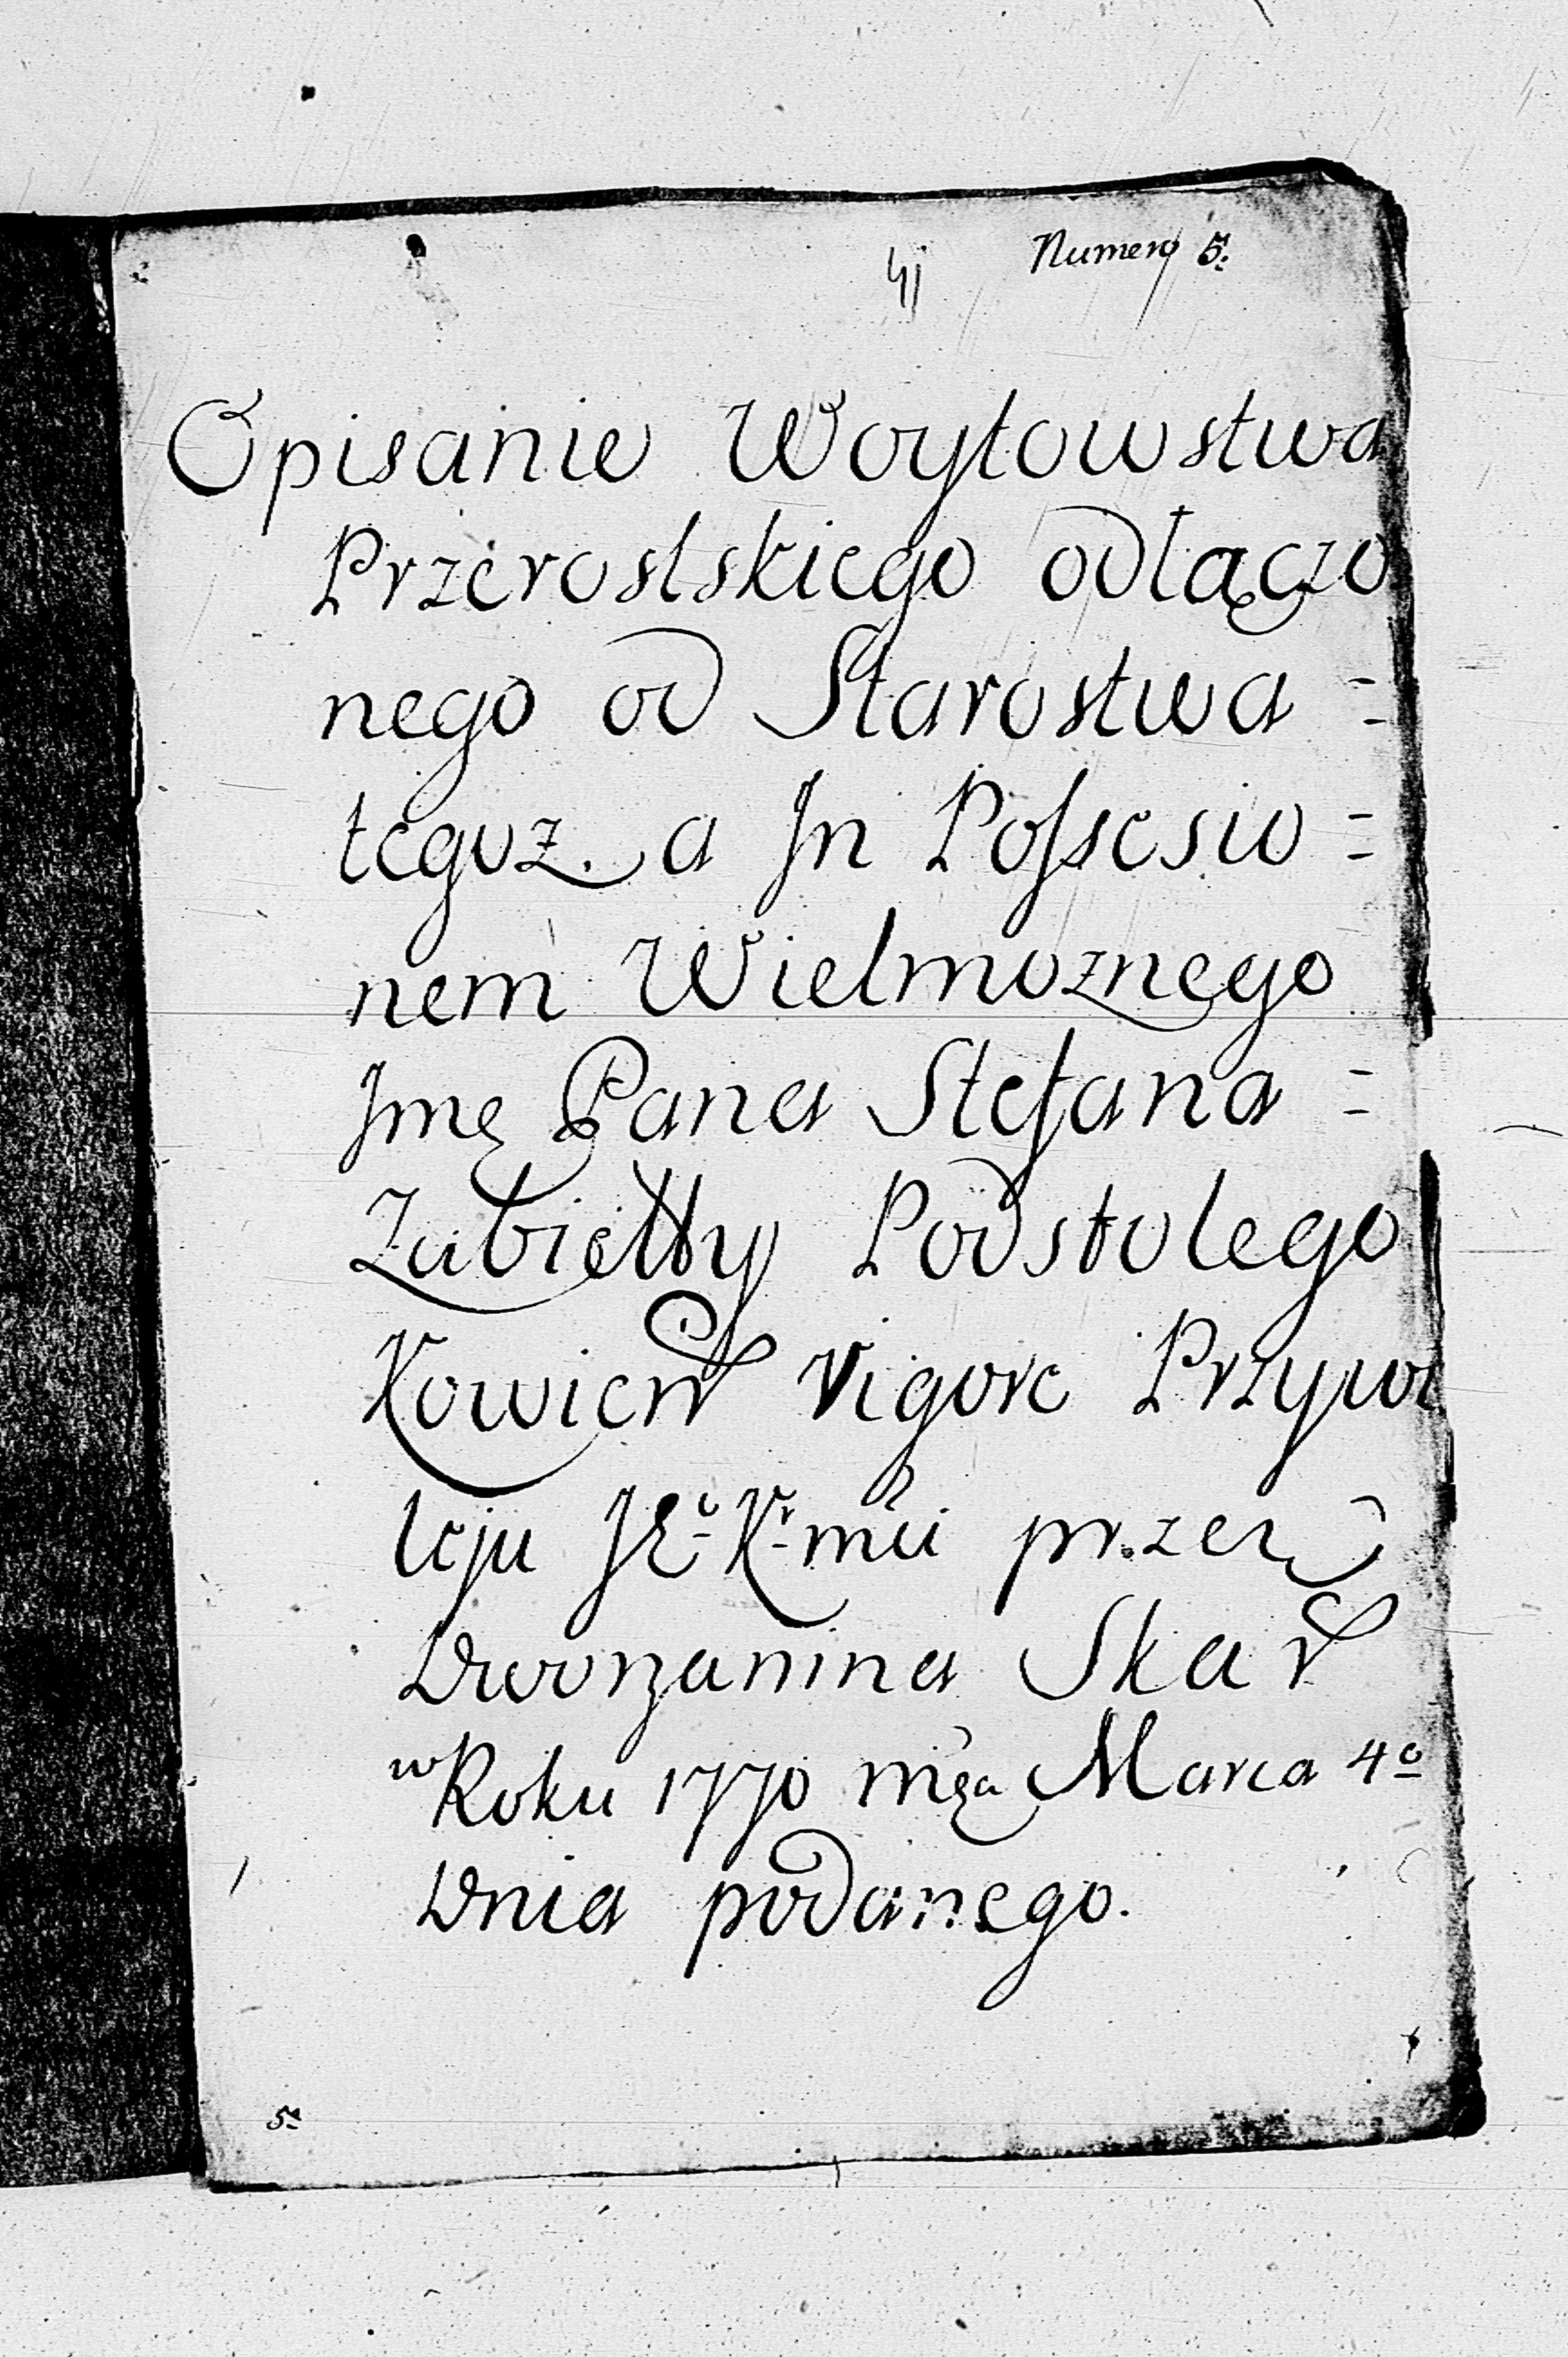 Numero 5.
Opisanie Woytowstwa
Przeroslskiego odłączo
nego od Starostwa =
tegoz a Jn Possesio =
nem Wielmoznego
Jmę Pana Stefana =
Zabiełły Podstolego
Kowień Vigore Przywi
leju JEº Kr mći przez
Dworzanina Skar
w Roku 1770 mса Marca 4º
Dnia podanego.
5ª